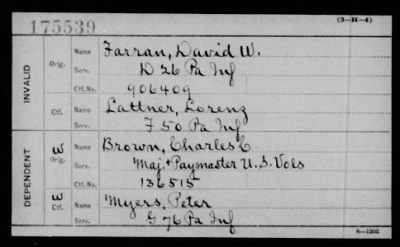 175539
(3-H-4)
INVALID
Orig.
Name Farran, David W.
Serv. D 26 Pa Inf
Ctf. No. 906409
Ctf.
Name Lattner, Lorenz
Serv. F 50 Pa Inf
DEPENDENT
W
Orig.
Name Brown, Charles C.
Serv. Maj. + Paymaster U.S. Vols
Ctf. No. 136515
W
Ctf.
Name Myers, Peter
Serv. G 76 Pa Inf